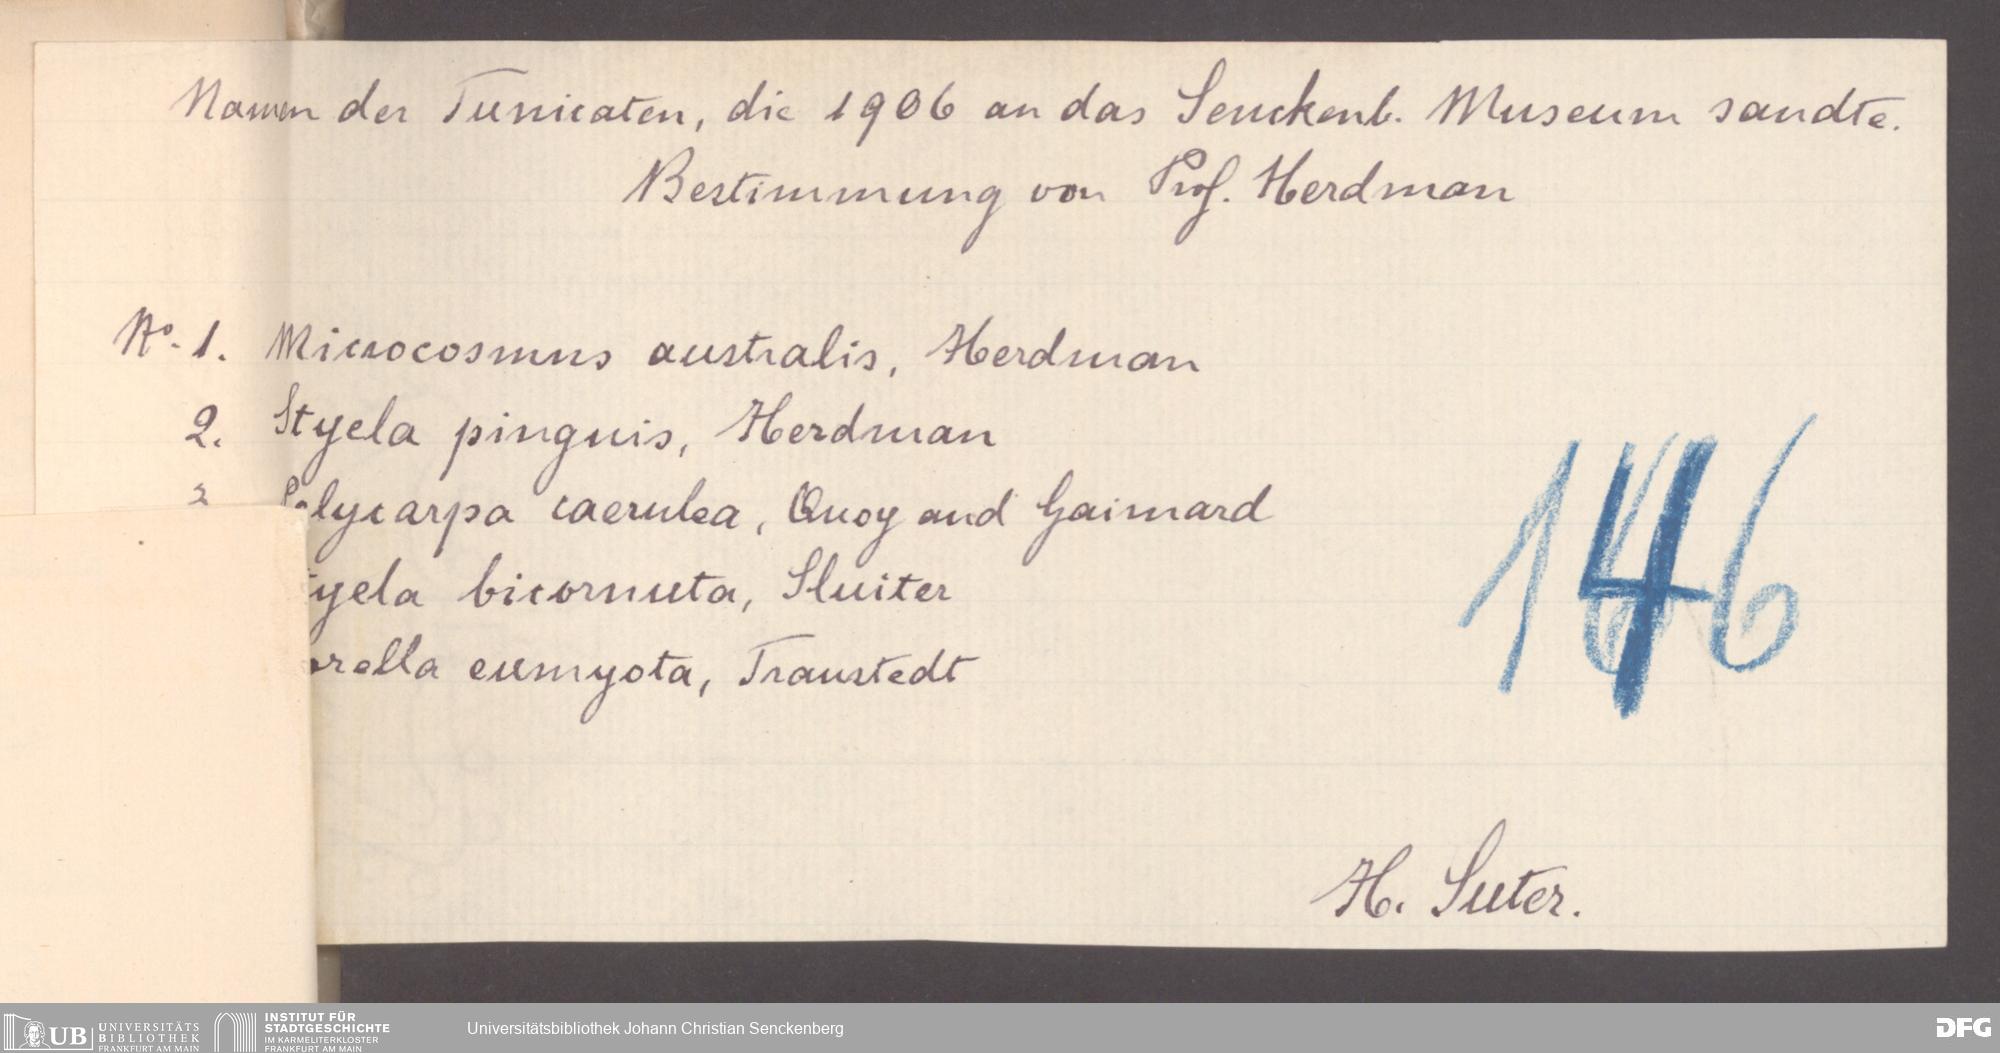 Namen der Tunicaten, die 1906 an das Senckenb. Museum sandte.
Bestimmung von Prof. Herdman
No. 1. Microcosmus australis, Herdman
2. Styela pinguis, Herdman
3 Polycarpa caerulea, Quoy and Gaimard
tyela bicornuta, Sluiter
orella eumyota, Traustedt
146
H. Suter.
UB UNIVERSITÄTS BIBLIOTHEK FRANKFURT AM MAIN
INSTITUT FÜR STADTGESCHICHTE IM KARMELITERKLOSTER FRANKFURT AM MAIN
Universitätsbibliothek Johann Christian Senckenberg
DFG